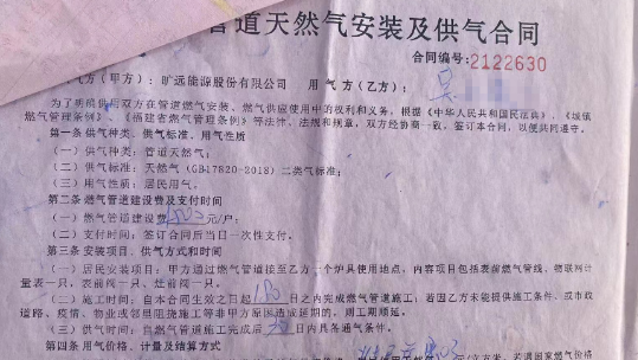 管道天然气安装及供气合同
合同编号:2122630
气方（甲方）：旷远能源股份有限公司 用气方（乙方）：吴
为了明确供用双方在管道燃气安装、燃气供应使用中的权利和义务，根据《中华人民共和国民法典》、《城镇
燃气管理条例》、《福建省燃气管理条例》等法律、法规和规章，双方经协商一致，签订本合同，以便共同遵守。
第一条 供气种类、供气标准、用气性质
（一）供气种类：管道天然气；
（二）供气标准：天然气（GB17820-2018）二类气标准；
（三）用气性质：居民用气。
第二条 燃气管道建设费及支付时间
（一）燃气管道建设费 元/户；
（二）支付时间：签订合同后当日一次性支付。
第三条 安装项目、供气方式和时间
（一）居民安装项目：甲方通过燃气管道接至乙方一个炉具使用地点，内容项目包括表前燃气管线、物联网计
量表一只，表前阀一只、灶前阀一只。
（二）施工时间：自本合同生效之日起180日之内完成燃气管道施工；若因乙方未能提供施工条件，或市政
道路、疫情、物业或邻里阻挠施工等非甲方原因造成延期的，则工期顺延。
（三）供气时间：自燃气管道施工完成后 日内具备通气条件。
第四条 用气价格、计量及结算方式
元/立方米，若遇国家燃气价格